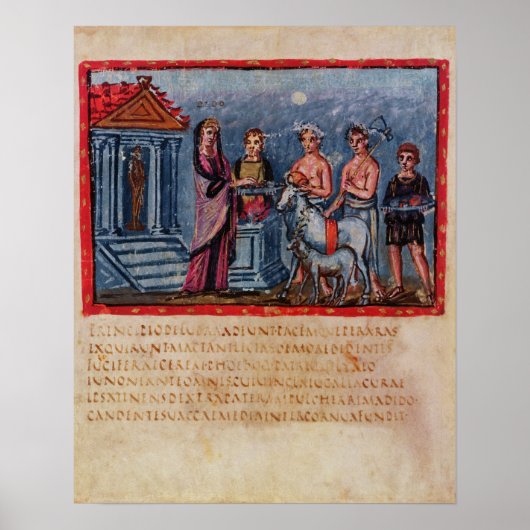 DIDO
PRINCIPIODELUBRAADEUNTPACEMQUEPERARAS
EXQUIRUNTMACTANTLECTASDEMOREBIDENTES
LEGIFERAECERERIPHOEBOQUEPATRIQUELYAEO
IUNONIANTEOMNISCUIUINCLAIUGALIACURAE
IPSATENENSDEXTRAPATERAMPULCHERRIMADIDO
CANDENTISUACCAEMEDIAINTERCORNUAFUNDIT